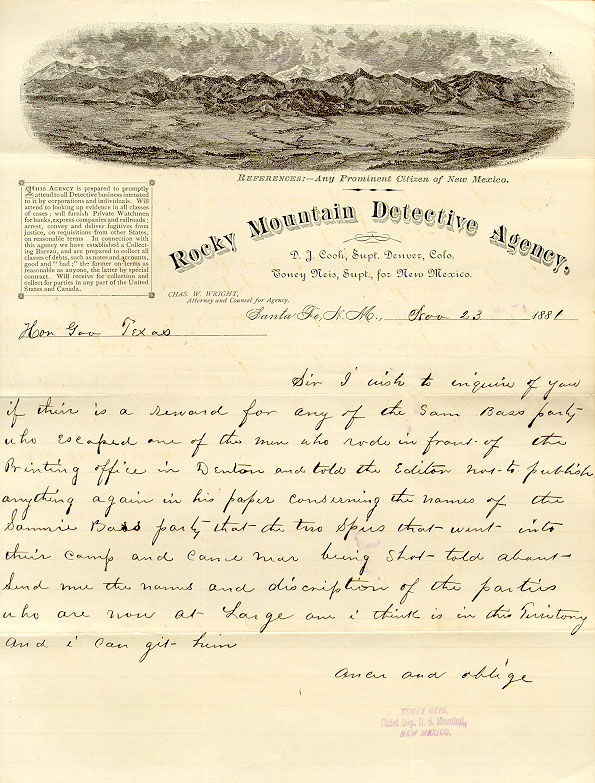 REFERENCES:—Any Prominent Citizen of New Mexico.
Rocky Mountain Detective Agency,
D. J. Cook, Supt. Denver, Colo.
Toney Neis, Supt., for New Mexico.
THIS AGENCY is prepared to promptly
attend to all Detective business intrusted
to it by corporations and individuals. Will
attend to looking up evidence in all classes
of cases; will furnish Private Watchmen
for banks, express companies and railroads;
arrest, convey and deliver fugitives from
justice, on requisitions from other States,
on reasonable terms. In connection with
this agency we have established a Collect-
ing Bureau, and are prepared to collect all
classes of debts, such as notes and accounts,
good and "bad;" the former on terms as
reasonable as anyone, the latter by special
contract. Will receive for collection and
collect for parties in any part of the United
States and Canada.
CHAS. W. WRIGHT,
Attorney and Counsel for Agency.
Santa Fe, N. M., Nov 23 1881
Hon Gov Texas
Sir I wish to inquire of you
if their is a reward for any of the Sam Bass party
who escaped one of the men who rode in front of the
Printing office in Denton and told the Editor not to publish
anything again in his paper conserning the names of the
Sammie Bass party that the two Spies that went into
their camp and came near being Shot told about
Send me the names and discription of the parties
who are now at Large one i think is in this Territory
and i can git him
ancer and oblige
TONEY NEIS,
Chief Dep. U. S. Marshal,
NEW MEXICO.